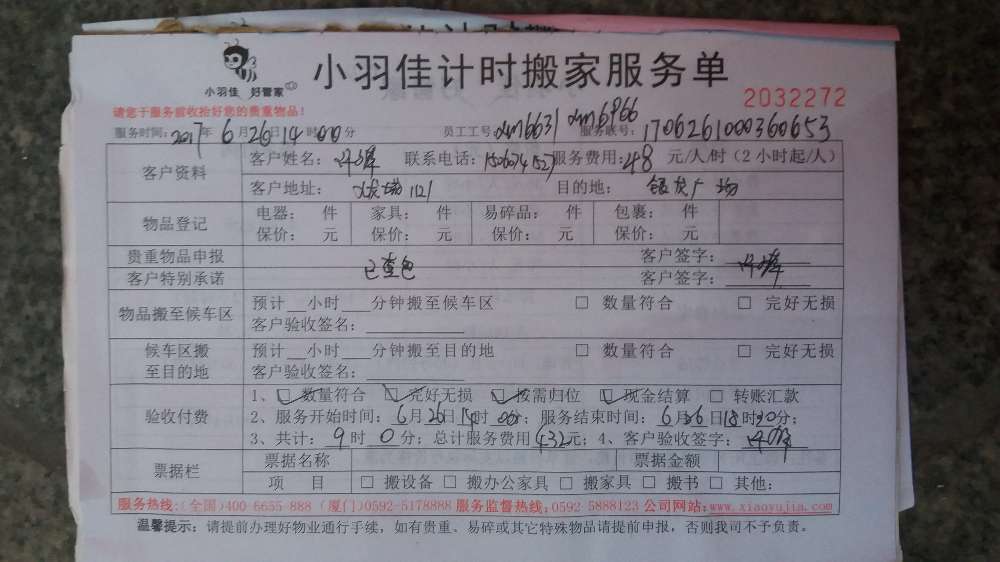 小羽佳 好管家
小羽佳计时搬家服务单
2032272
请您于服务前收拾好您的贵重物品!
服务时间: 2017 年 6 月 26 日 14 时 00 分 员工工号: 服务帐号: 170626100360653
客户资料 客户姓名: 联系电话: 服务费用: 48 元/人/时(2小时起/人)
客户地址: 1121 目的地: 银灰广场
物品登记 电器: 件 家具: 件 易碎品: 件 包裹: 件
保价: 元 保价: 元 保价: 元 保价: 元
贵重物品申报 客户签字:
客户特别承诺 已查包 客户签字:
物品搬至候车区 预计___小时___分钟搬至候车区 □ 数量符合 □ 完好无损
客户验收签名:
候车区搬至目的地 预计__小时___分钟搬至目的地 □ 数量符合 □ 完好无损
客户验收签名:
验收付费 1、☑ 数量符合 ☑ 完好无损 ☑ 按需归位 ☑ 现金结算 □ 转账汇款
2、服务开始时间: 6 月 26 日 14 时 00 分; 服务结束时间: 6 月 26 日 18 时 30 分;
3、共计: 9 时 0 分; 总计服务费用 432 元; 4、客户验收签字:
票据栏 票据名称 票据金额
项 目 □ 搬设备 □ 搬办公家具 □ 搬家具 □ 搬书 □ 其他:
服务热线:(全国)400-6655-888 (厦门)0592-5178888 服务监督热线:0592-5888123 公司网站:www.xiaoyujia.com
温馨提示: 请提前办理好物业通行手续, 如有贵重、易碎或其它特殊物品请提前申报, 否则我司不予负责。